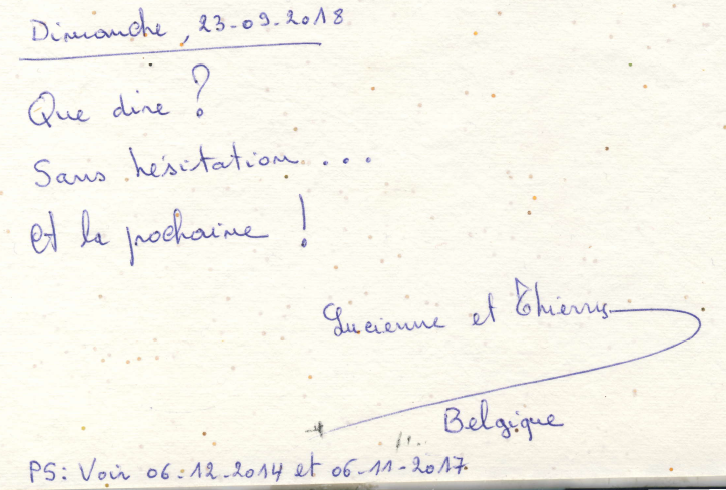 Dimanche, 23-09-2018
Que dire ?
Sans hésitation ...
et la prochaine !
Lucienne et Thierry
Belgique
PS: Voir 06-12-2014 et 06-11-2017.